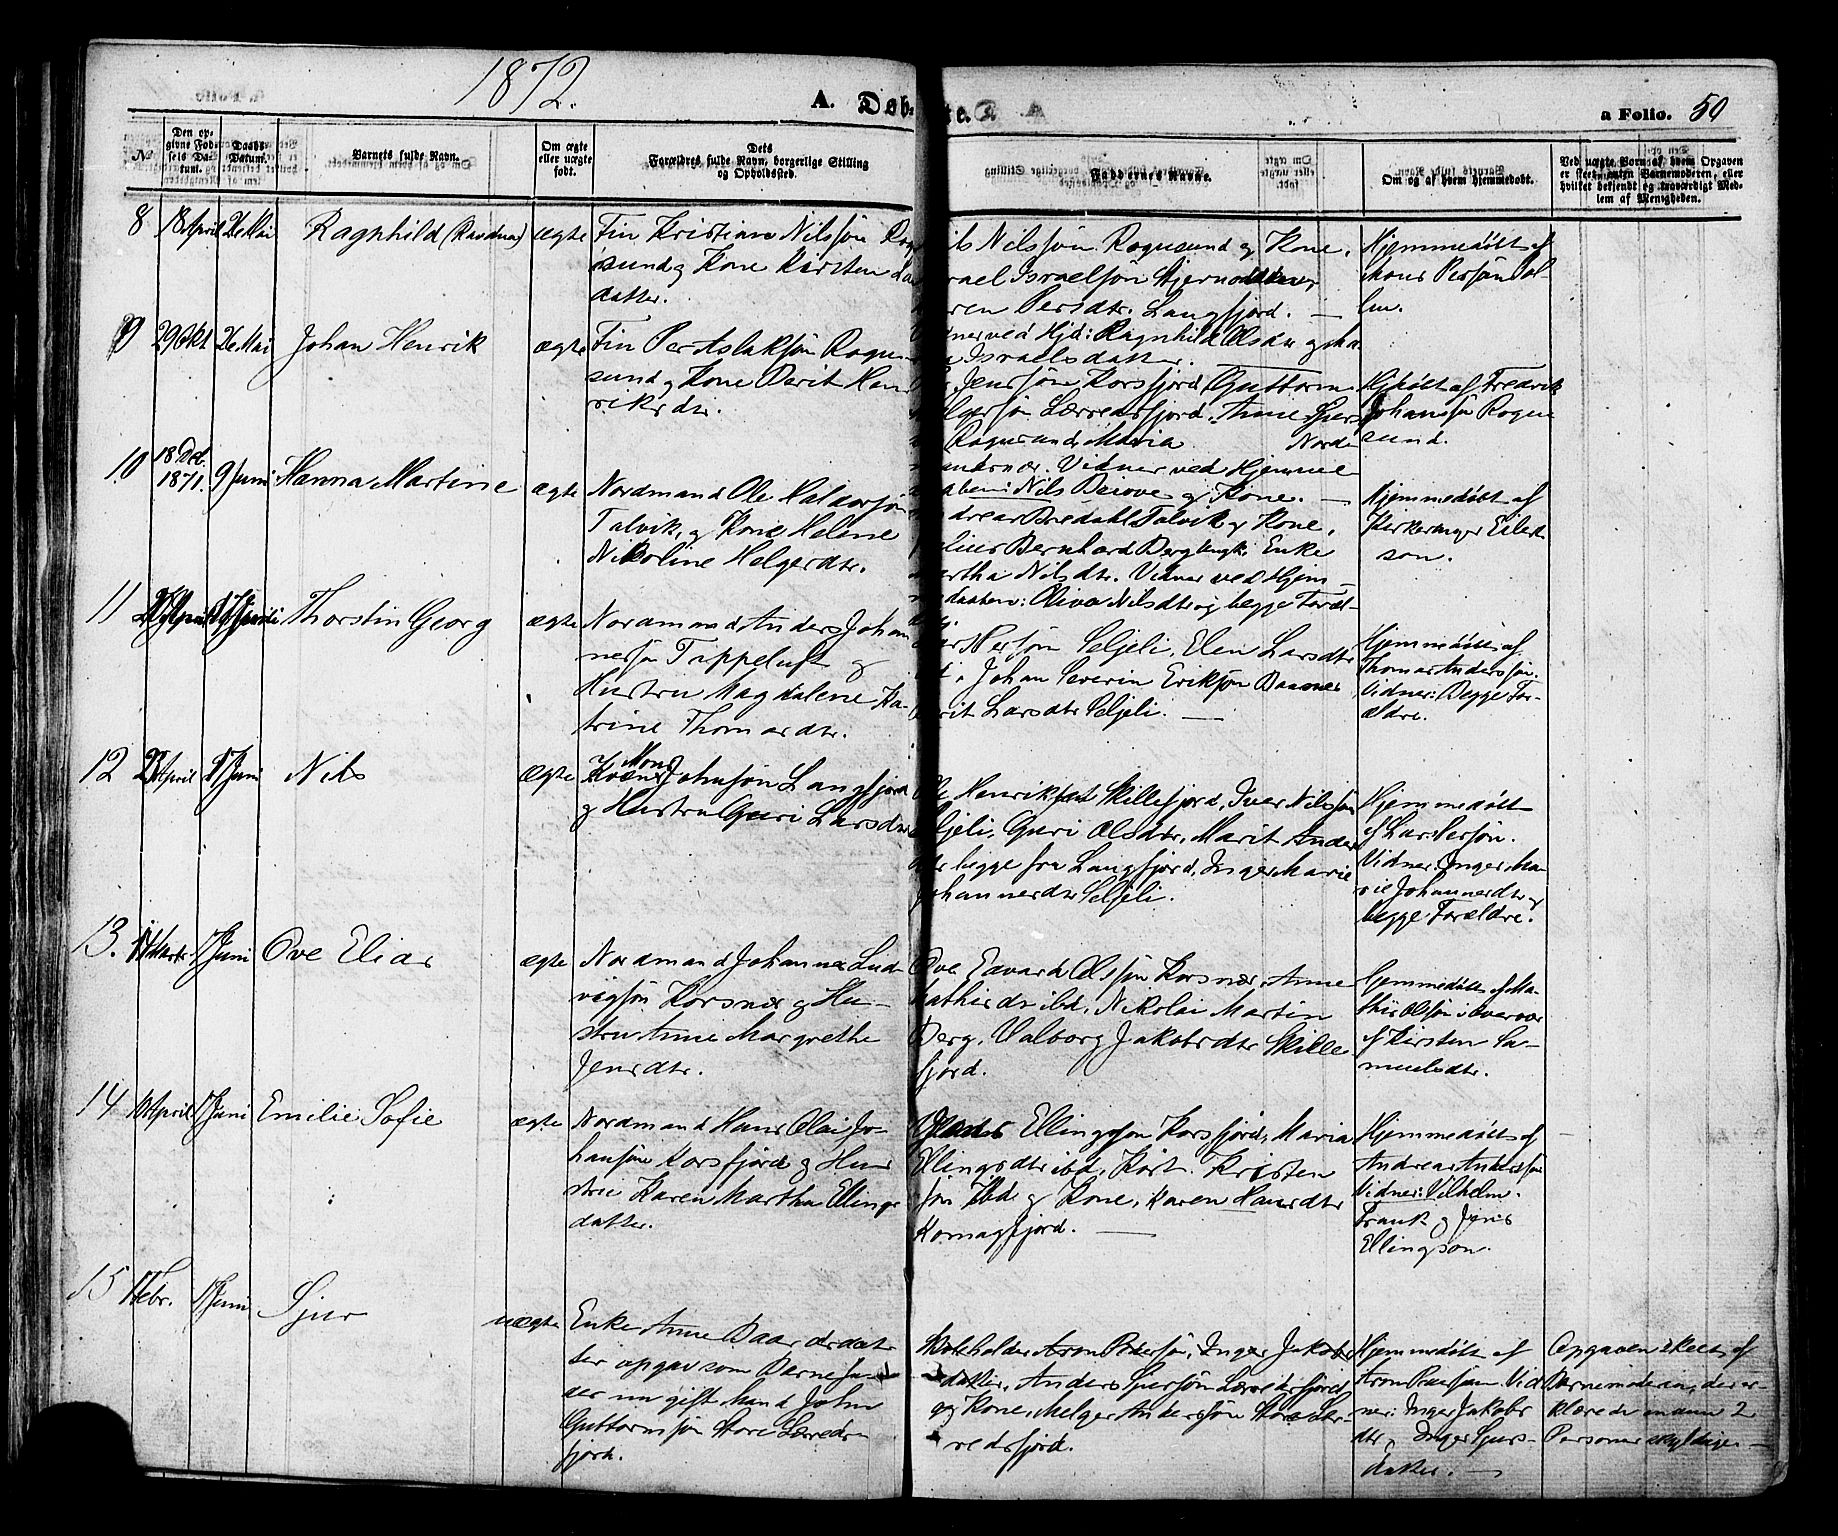 1872.
A. Døb
te.
a Folio. 50
No
Den op-
givne Fød-
sels Da-
tum.
Daabs-
Datum.
Barnets fulde Navn.
Om ægte
eller uægte
født.
Dets
Forældres fulde Navn, borgerlige Stilling
og Opholdssted.
Faddernes Navne.
Om og af hvem hjemmedøbt.
Ved uægte Børn af hvem Opgaven
er skeet, enten Barnemoderen, eller
hvilket bekjendt og troværdigt Med-
lem af Menigheden.
8 18 April 26 Mai Ragnhild (Ravdna) ægte Fin Kristian Nilssøn Rog
sund og Kone Kirsten
datter.
Nilssøn Rognsund og Kone,
Israelsøn Stjernodden,
Persdtr. Langfjord. —
ved Hjd: Ragnhild Olsdtr og
Israelsdatter.
Hjemmedøbt af
Mons Persøn
9 29 Okt 26 Mai Johan Henrik ægte Fin Per Aslaksøn Rogn
sund og Kone Berit Hen
riksdtr.
Jenssøn Korsfjord, Guttorm
Lærredsfjord, Anne
Rognsund, Maria Norde
Vidner ved Hjemme
Nils og Kone. —
Hjdøbt af Fredrik
Johansøn Rogn
sund.
10 18 Det.
1871. 9 Juni Hanna Martine ægte Nordmand Ole Haldorsøn
Talvik, og Kone Helene
Nikoline Helgesdtr.
Bredahl Talvik og Kone,
Bernhard Berg Enke
Nilsdtr. Vidner ved Hjem-
Oliva Nilsdtr og begge Foræl-
Hjemmedøbt af
Kirkesanger Eilert
sen.
11 April Juni Thorstin Georg ægte Nordmand Anders Johan
nessøn Tappeluft og
Hustru Magdalene Ka-
trine Thomasdtr.
Persøn Seljeli, Elen Larsdtr
Johan Severin Eriksøn
Larsdtr Seljeli. —
Hjemmedøbt af
Thomas Anderssøn.
Vidner: Begge For-
ældre.
12 23 April 17 Juni Nils ægte Kvæn Mons Johnsøn Langfjord
og Hustru Guri Larsdtr
Henriksen Skillefjord, Iver Nilssøn
Seljeli, Guri Olsdtr, Marit Anders
begge fra Langfjord, Inger Marie
Johannesdtr Seljeli.
Hjemmedøbt
af Lars Persøn.
Vidner: Inger Ma-
rie Johannesdtr og
begge Forældre.
13. 14 Marts. 17 Juni Ove Elias ægte Nordmand Johannes Lud-
vigsøn Korsnæs og Hu-
stru Anne Margrethe
Jensdtr.
Ove Edvard Olssøn Korsnæs, Anne
Mathisdtr ibd, Nikolai Martin
Berg, Valborg Jakobsdtr Skille
fjord.
Hjemmedøbt af Ma-
this Olsøn i Overvær
af Kirsten Sa-
muelsdtr.
14 10 April 17 Juni Emilie Sofie ægte Nordmand Hans Olai Jo-
hansøn Korsfjord og Hu
stru Karen Martha Ellings
datter.
Ellingssøn Korsfjord, Maria
Ellingsdtr ibd, Kort. Kristen
søn ibd og Kone, Karen Hansdtr
Komagfjord. —
Hjemmedøbt af
Andreas Anderssøn
Vidner: Vilhelm
Frank og Jens
Ellingsøn.
15 Febr. 17 Juni Sjur uægte Enke Anne Baardsdat
ter opgav som Barnefa-
der nu gift Mand John
Guttormsøn Store Lærreds
fjord.
Aron Pedersøn, Inger Jakobs
datter, Anders Sjursøn Lærredsfjord
og Kone, Helge Anderssøn Store Lær-
redsfjord.
Hjemmedøbt af
Aron Pedersøn Vid
ner: Inger Jakobs
dtr, Inger Sjurs-
datter. —
Opgaven skeet af
Barnemoderen, der er-
klærede endnu 2
Personer skyldige —